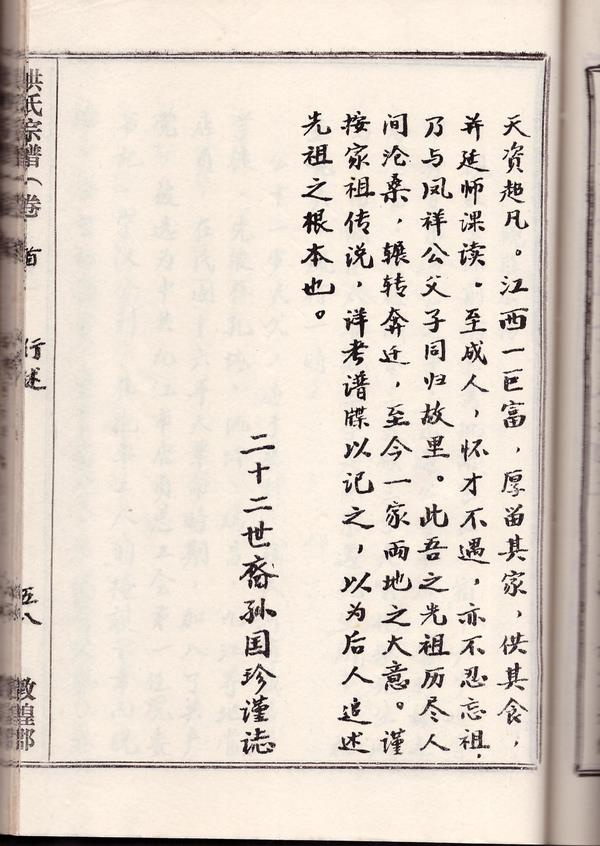 天资超凡。江西一巨富，厚留其家，供其食，
并延师课读。至成人，怀才不遇，亦不忍忘祖，
乃与凤祥公父子同归故里。此吾之先祖历尽人
间沧桑，辗转奔迁，至今一家两地之大意。谨
按家祖传说，详考谱牒以记之，以为后人追述
先祖之根本也。
二十二世裔孙国珍谨志
洪氏宗谱（卷首 行述 五八 敦煌郡